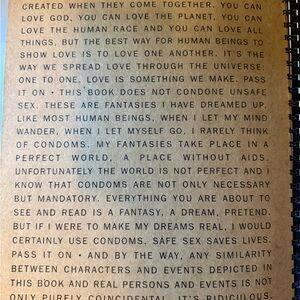 CREATED WHEN THEY COME TOGETHER. YOU CAN
LOVE GOD, YOU CAN LOVE THE PLANET, YOU CAN
LOVE THE HUMAN RACE AND YOU CAN LOVE ALL
THINGS, BUT THE BEST WAY FOR HUMAN BEINGS TO
SHOW LOVE IS TO LOVE ONE ANOTHER. IT'S THE
WAY WE SPREAD LOVE THROUGH THE UNIVERSE:
ONE TO ONE. LOVE IS SOMETHING WE MAKE. PASS
IT ON • THIS BOOK DOES NOT CONDONE UNSAFE
SEX. THESE ARE FANTASIES I HAVE DREAMED UP.
LIKE MOST HUMAN BEINGS, WHEN I LET MY MIND
WANDER, WHEN I LET MYSELF GO, I RARELY THINK
OF CONDOMS. MY FANTASIES TAKE PLACE IN A
PERFECT WORLD, A PLACE WITHOUT AIDS.
UNFORTUNATELY THE WORLD IS NOT PERFECT AND I
KNOW THAT CONDOMS ARE NOT ONLY NECESSARY
BUT MANDATORY. EVERYTHING YOU ARE ABOUT TO
SEE AND READ IS A FANTASY, A DREAM, PRETEND.
BUT IF I WERE TO MAKE MY DREAMS REAL, I WOULD
CERTAINLY USE CONDOMS. SAFE SEX SAVES LIVES.
PASS IT ON • AND BY THE WAY, ANY SIMILARITY
BETWEEN CHARACTERS AND EVENTS DEPICTED IN
THIS BOOK AND REAL PERSONS AND EVENTS IS NOT
ONLY PURELY COINCIDENTAL, IT'S RIDICULOUS.